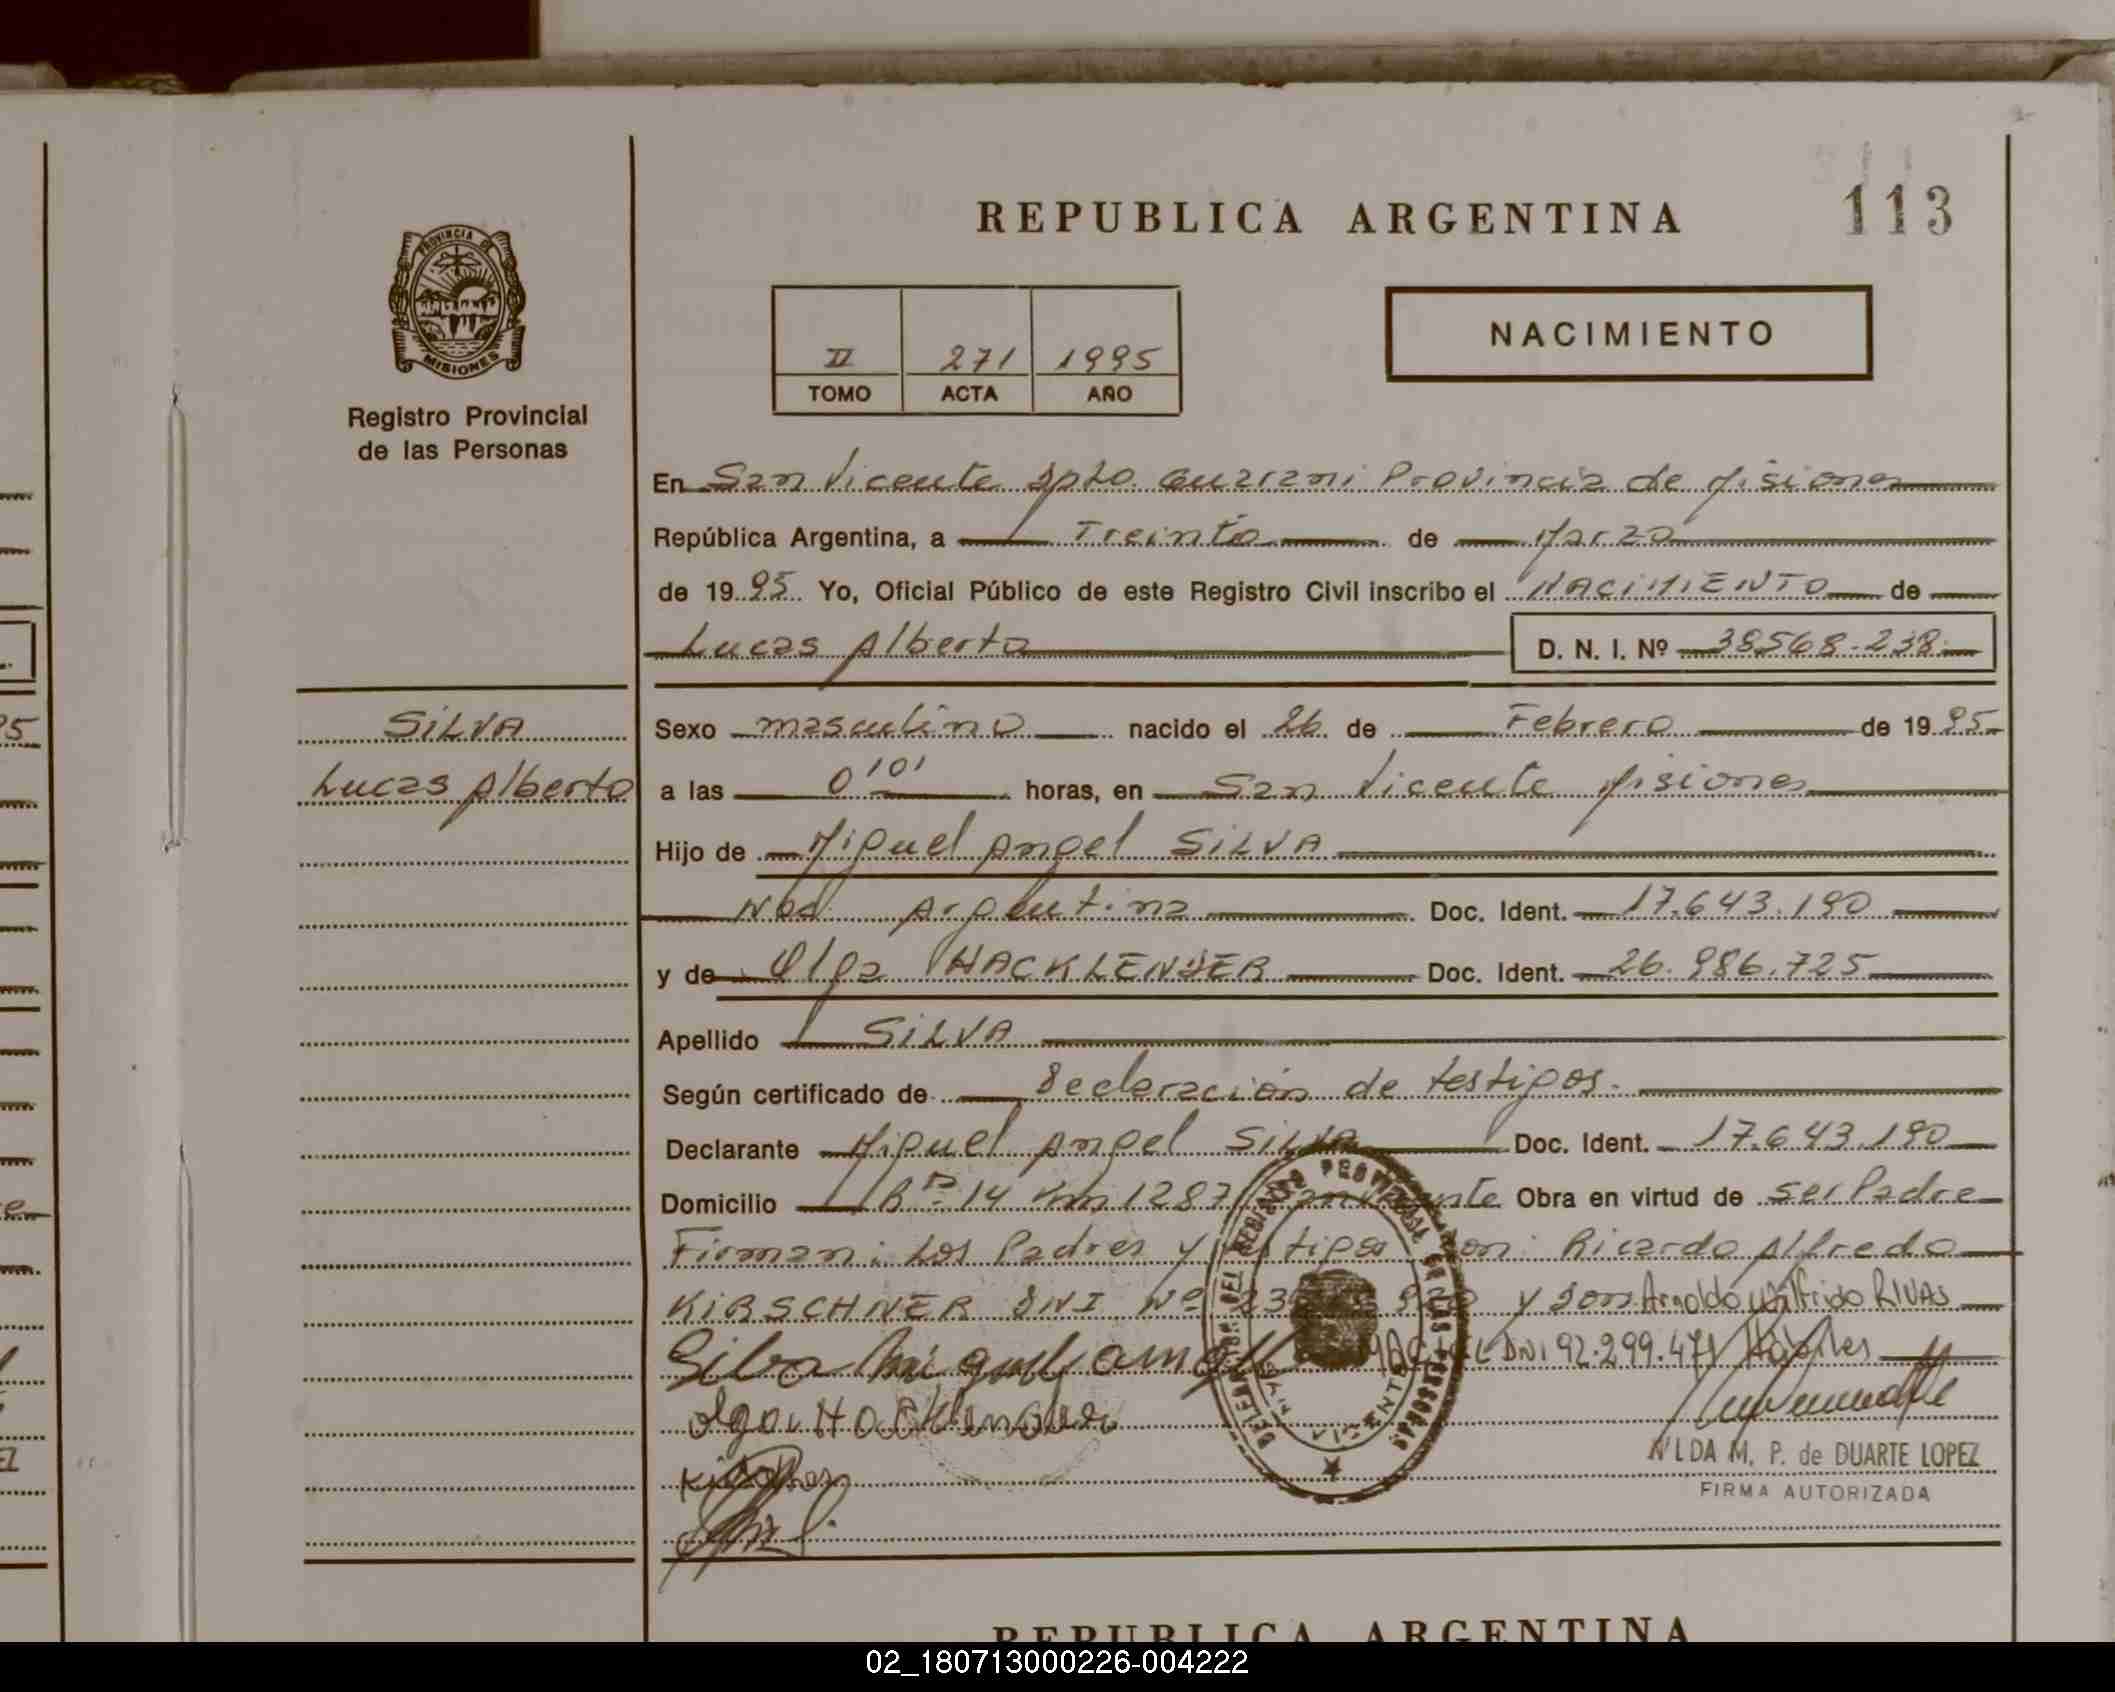 REPUBLICA ARGENTINA
113
PROVINCIA DE
MISIONES
Registro Provincial
de las Personas
II 271 1995
TOMO ACTA AÑO
NACIMIENTO
En San Vicente Dpto. Guarani Provincia de Misiones
República Argentina, a Treinta de Marzo
de 1995 Yo, Oficial Público de este Registro Civil inscribo el NACIMIENTO de
Lucas Alberto D. N. I. Nº 38568.238
SILVA
Lucas Alberto
Sexo masculino nacido el 26 de Febrero de 1995
a las 0'01' horas, en San Vicente Misiones
Hijo de Miguel Angel SILVA
Nac. Argentina Doc. Ident. 17.643.190
y de Olga HACKLENDER Doc. Ident. 26.986.725
Apellido SILVA
Según certificado de Declaración de testigos.
Declarante Miguel Angel SILVA Doc. Ident. 17.643.190
Domicilio R 14 Km 1287 Obra en virtud de ser Padre
Firman: Los Padres y Ricardo Alfredo
KIRSCHNER DNI Nº y Don Arnoldo Walfrido RIVAS
DNI 92.299.471 Hábiles
Silva Miguel angel
NILDA M. P. de DUARTE LOPEZ
FIRMA AUTORIZADA
REPUBLICA ARGENTINA
02_180713000226-004222